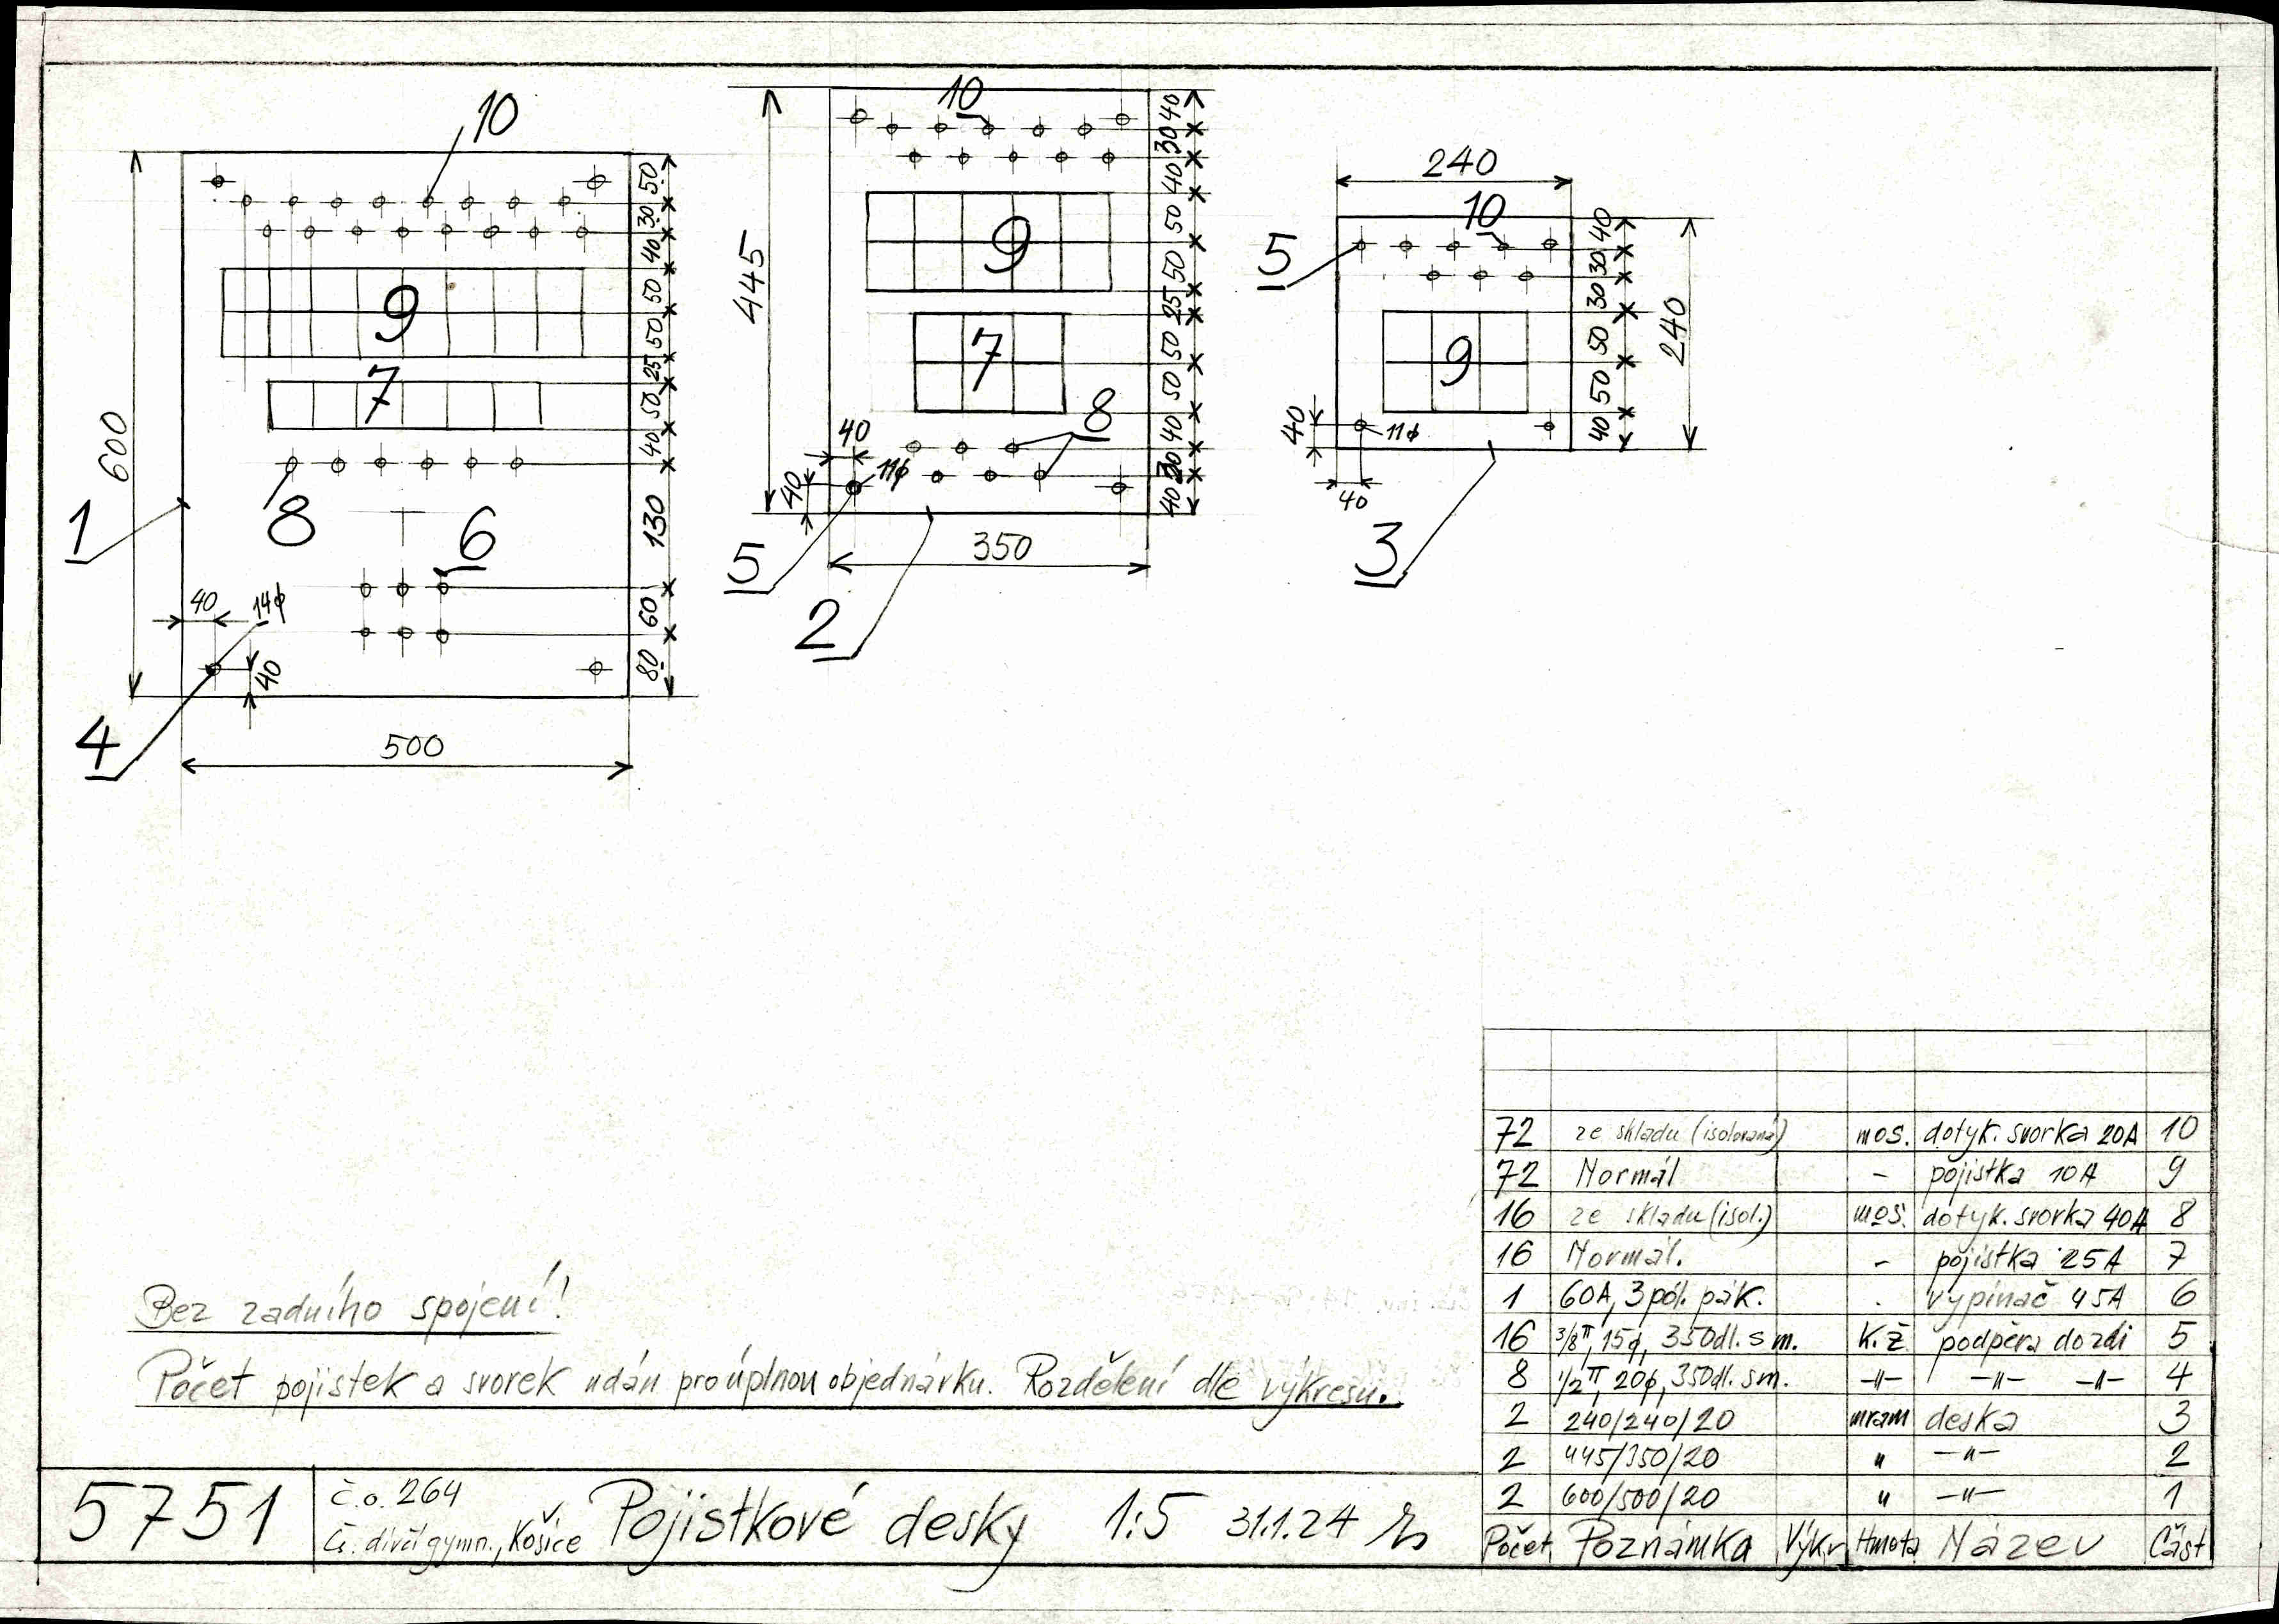 10
600
50
30
40
50
50
25
50
40
130
60
80
9
7
8
6
1
40
14ϕ
40
4
500
10
445
40
30
40
50
50
25
50
50
40
30
40
9
7
8
40
11ϕ
40
5
350
2
240
10
5
40
30
30
50
50
40
240
9
40
11ϕ
40
3
72 ze skladu (isolovaná) mos. dotyk. svorka 20A 10
72 Normál - pojistka 10A 9
16 ze skladu (isol.) mos. dotyk. svorka 40A 8
16 Normál. - pojistka 25A 7
1 60A, 3 pól. pák. . vypínač 45A 6
16 3/8", 15ϕ, 350dl. s m. k.ž. podpěra do zdi 5
8 1/2", 20ϕ, 350dl. s m. -"- -"- -"- 4
2 240/240/20 mram deska 3
2 445/350/20 " -"- 2
2 600/500/20 " -"- 1
Počet Poznámka Výkr. Hmota Název Část
Bez zadního spojení!
Počet pojistek a svorek udán pro úplnou objednávku. Rozdělení dle výkresu.
5751
č.o. 264
Č. dívčí gymn., Košice
Pojistkové desky 1:5 31.1.24